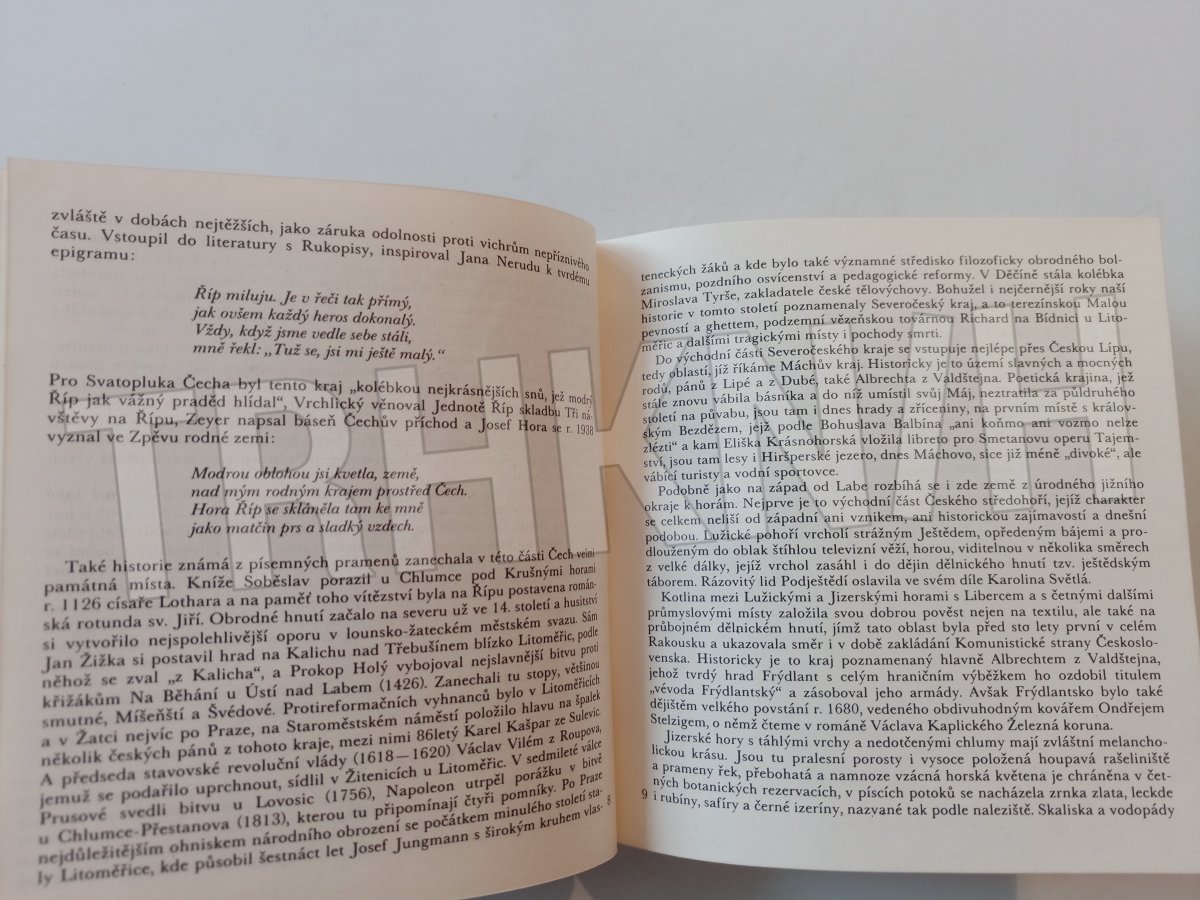 zvláště v dobách nejtěžších, jako záruka odolnosti proti vichrům nepříznivého
času. Vstoupil do literatury s Rukopisy, inspiroval Jana Nerudu k tvrdému
epigramu:
Říp miluju. Je v řeči tak přímý,
jak ovšem každý heros dokonalý.
Vždy, když jsme vedle sebe stáli,
mně řekl: „Tuž se, jsi mi ještě malý.“
Pro Svatopluka Čecha byl tento kraj „kolébkou nejkrásnějších snů, jež modrý
Říp jak vážný praděd hlídal“, Vrchlický věnoval Jednotě Říp skladbu Tři ná-
vštěvy na Řípu, Zeyer napsal báseň Čechův příchod a Josef Hora se r. 1938
vyznal ve Zpěvu rodné zemi:
Modrou oblohou jsi kvetla, země,
nad mým rodným krajem prostřed Čech.
Hora Říp se skláněla tam ke mně
jako matčin prs a sladký vzdech.
Také historie známá z písemných pramenů zanechala v této části Čech velmi
památná místa. Kníže Soběslav porazil u Chlumce pod Krušnými horami
r. 1126 císaře Lothara a na paměť toho vítězství byla na Řípu postavena román-
ská rotunda sv. Jiří. Obrodné hnutí začalo na severu už ve 14. století a husitství
si vytvořilo nejspolehlivější oporu v lounsko-žateckém městském svazu. Sám
Jan Žižka si postavil hrad na Kalichu nad Třebušínem blízko Litoměřic, podle
něhož se zval „z Kalicha“, a Prokop Holý vybojoval nejslavnější bitvu proti
křižákům Na Běhání u Ústí nad Labem (1426). Zanechali tu stopy, většinou
smutné, Míšeňští a Švédové. Protireformačních vyhnanců bylo v Litoměřicích
a v Žatci nejvíc po Praze, na Staroměstském náměstí položilo hlavu na špalek
několik českých pánů z tohoto kraje, mezi nimi 86letý Karel Kašpar ze Sulevic.
A předseda stavovské revoluční vlády (1618—1620) Václav Vilém z Roupova,
jemuž se podařilo uprchnout, sídlil v Žitenicích u Litoměřic. V sedmileté válce
Prusové svedli bitvu u Lovosic (1756), Napoleon utrpěl porážku v bitvě
u Chlumce-Přestanova (1813), kterou tu připomínají čtyři pomníky. Po Praze
nejdůležitějším ohniskem národního obrození se počátkem minulého století sta-
ly Litoměřice, kde působil šestnáct let Josef Jungmann s širokým kruhem vlas-
8
teneckých žáků a kde bylo také významné středisko filozoficky obrodného bol-
zanismu, pozdního osvícenství a pedagogické reformy. V Děčíně stála kolébka
Miroslava Tyrše, zakladatele české tělovýchovy. Bohužel i nejčernější roky naší
historie v tomto století poznamenaly Severočeský kraj, a to terezínskou Malou
pevností a ghettem, podzemní vězeňskou továrnou Richard na Bídnici u Lito-
měřic a dalšími tragickými místy i pochody smrti.
Do východní části Severočeského kraje se vstupuje nejlépe přes Českou Lípu,
tedy oblastí, jíž říkáme Máchův kraj. Historicky je to území slavných a mocných
rodů, pánů z Lipé a z Dubé, také Albrechta z Valdštejna. Poetická krajina, jež
stále znovu vábila básníka a do níž umístil svůj Máj, neztratila za půldruhého
století na půvabu, jsou tam i dnes hrady a zříceniny, na prvním místě s králov-
ským Bezdězem, jejž podle Bohuslava Balbína „ani koňmo ani vozmo nelze
zlézti“ a kam Eliška Krásnohorská vložila libreto pro Smetanovu operu Tajem-
ství, jsou tam lesy i Hiršperské jezero, dnes Máchovo, sice již méně „divoké“, ale
vábící turisty a vodní sportovce.
Podobně jako na západ od Labe rozbíhá se i zde země z úrodného jižního
okraje k horám. Nejprve je to východní část Českého středohoří, jejíž charakter
se celkem neliší od západní ani vznikem, ani historickou zajímavostí a dnešní
podobou. Lužické pohoří vrcholí strážným Ještědem, opředeným bájemi a pro-
dlouženým do oblak štíhlou televizní věží, horou, viditelnou v několika směrech
z velké dálky, jejíž vrchol zasáhl i do dějin dělnického hnutí tzv. ještědským
táborem. Rázovitý lid Podještědí oslavila ve svém díle Karolina Světlá.
Kotlina mezi Lužickými a Jizerskými horami s Libercem a s četnými dalšími
průmyslovými místy založila svou dobrou pověst nejen na textilu, ale také na
průbojném dělnickém hnutí, jímž tato oblast byla před sto lety první v celém
Rakousku a ukazovala směr i v době zakládání Komunistické strany Českoslo-
venska. Historicky je to kraj poznamenaný hlavně Albrechtem z Valdštejna,
jehož tvrdý hrad Frýdlant s celým hraničním výběžkem ho ozdobil titulem
„vévoda Frýdlantský“ a zásoboval jeho armády. Avšak Frýdlantsko bylo také
dějištěm velkého povstání r. 1680, vedeného obdivuhodným kovářem Ondřejem
Stelzigem, o němž čteme v románě Václava Kaplického Železná koruna.
Jizerské hory s táhlými vrchy a nedotčenými chlumy mají zvláštní melancho-
lickou krásu. Jsou tu pralesní porosty i vysoce položená houpavá rašeliniště
a prameny řek, přebohatá a namnoze vzácná horská květena je chráněna v čet-
ných botanických rezervacích, v píscích potoků se nacházela zrnka zlata, leckde
9 i rubíny, safíry a černé izeríny, nazvané tak podle naleziště. Skaliska a vodopády
TRHKNIH